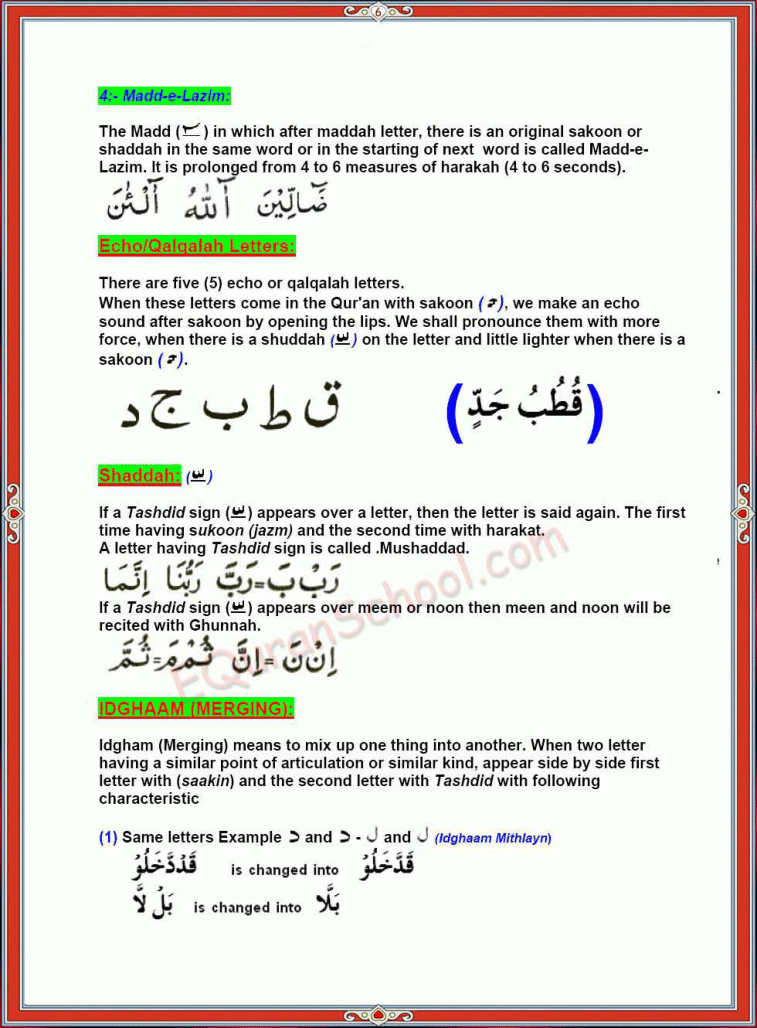 6
4:- Madd-e-Lazim:
The Madd ( ـٓ ) in which after maddah letter, there is an original sakoon or
shaddah in the same word or in the starting of next word is called Madd-e-
Lazim. It is prolonged from 4 to 6 measures of harakah (4 to 6 seconds).
ضَآلِّيْنَ آللّٰهُ آلْئٰنَ
Echo/Qalqalah Letters:
There are five (5) echo or qalqalah letters.
When these letters come in the Qur'an with sakoon ( ـْ ), we make an echo
sound after sakoon by opening the lips. We shall pronounce them with more
force, when there is a shuddah ( ـّ ) on the letter and little lighter when there is a
sakoon ( ـْ ).
ق ط ب ج د (قُطُبُ جَدٍّ)
Shaddah: ( ـّ )
If a Tashdid sign ( ـّ ) appears over a letter, then the letter is said again. The first
time having sukoon (jazm) and the second time with harakat.
A letter having Tashdid sign is called .Mushaddad.
رَبْ بَ=رَبَّ رَبُّنَا اِنَّمَا
If a Tashdid sign ( ـّ ) appears over meem or noon then meen and noon will be
recited with Ghunnah.
اِنْ نَ=اِنَّ ثُمْ مَ=ثُمَّ
EQuranSchool.com
IDGHAAM (MERGING):
Idgham (Merging) means to mix up one thing into another. When two letter
having a similar point of articulation or similar kind, appear side by side first
letter with (saakin) and the second letter with Tashdid with following
characteristic
(1) Same letters Example د and د - ل and ل (Idghaam Mithlayn)
قَدْدَّخَلُوْ is changed into قَدَّخَلُوْ
بَلْ لَّا is changed into بَلَّا